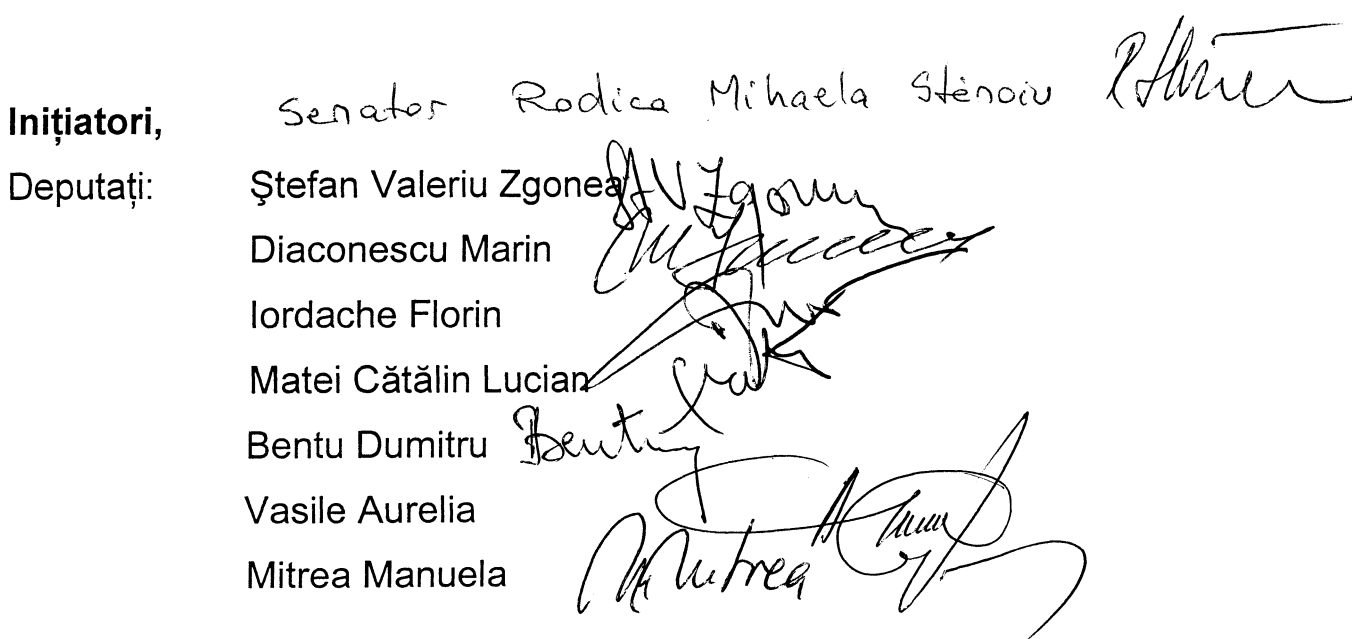 Inițiatori, Senator Rodica Mihaela Stănoiu
Deputați: Ştefan Valeriu Zgonea
Diaconescu Marin
Iordache Florin
Matei Cătălin Lucian
Bentu Dumitru
Vasile Aurelia
Mitrea Manuela